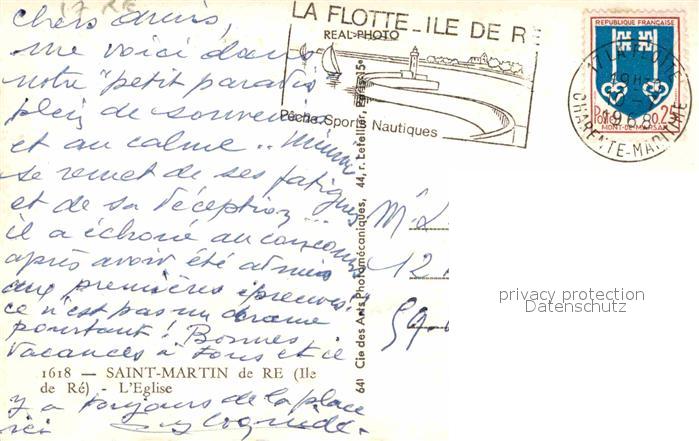 17 RE
chers amis,
me voici dans
notre "petit paradis
plein de souvenirs
et au calme..
se remet de ses fatigues
et de sa déception...
il a échoué au concours
après avoir été admis
aux premières épreuves!
ce n'est pas un drame
pourtant! Bonnes
vacances à tous et il
1618 — SAINT-MARTIN de RE (Ile
de Ré) - L'Eglise
y a toujours de la place
ici
LA FLOTTE-ILE DE RE
REAL-PHOTO
Pêche Sports Nautiques
REPUBLIQUE FRANÇAISE
Postes 0,25
MONT-DE-MARSAN
17 LA FLOTTE
19H
1968
CHARENTE-MARITIME
641 Cie des Arts Photomécaniques, 44, r. Letellier, Paris-15e
M.
12
59
privacy protection
Datenschutz